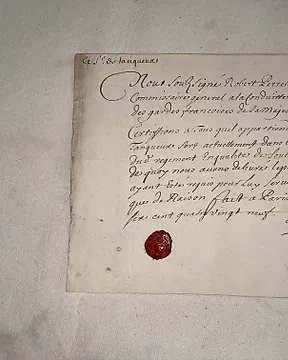 Le Sr. de tanqueux
Nous Soubsigné Robert
Commissaire general a la Conduitte
des gardes francoises de sa maje
Certiffions a tous quil appartien
Tanqueux Sert actuellement dans
Dud. regiment En qualité de Sou
de quoy nous avons deliuré le p
ayant Esté requis pour Luy Seru
que de Raison fait a Paris
six cent quatre vingt neuf